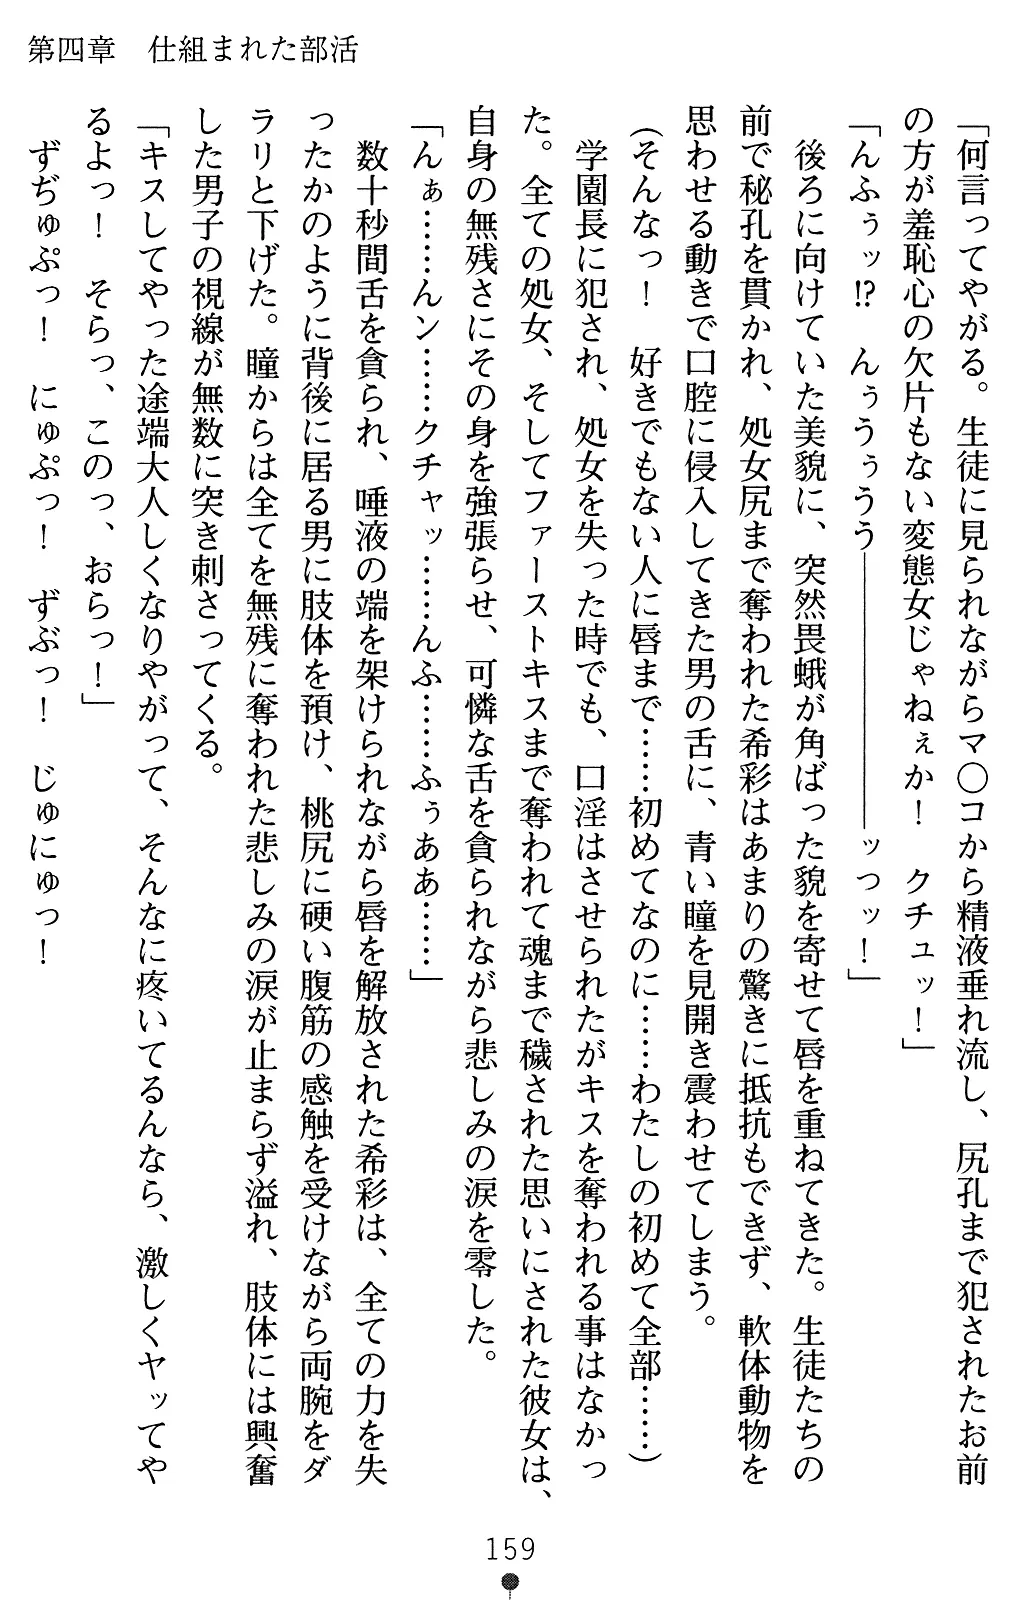 第四章　仕組まれた部活
「何言ってやがる。生徒に見られながらマ〇コから精液垂れ流し、尻孔まで犯されたお前
の方が羞恥心の欠片もない変態女じゃねぇか！　クチュッ！」
「んふぅッ!?　んぅうぅうう――――――――ッつッ！」
　後ろに向けていた美貌に、突然畏蛾が角ばった貌を寄せて唇を重ねてきた。生徒たちの
前で秘孔を貫かれ、処女尻まで奪われた希彩はあまりの驚きに抵抗もできず、軟体動物を
思わせる動きで口腔に侵入してきた男の舌に、青い瞳を見開き震わせてしまう。
（そんなっ！　好きでもない人に唇まで……初めてなのに……わたしの初めて全部……）
　学園長に犯され、処女を失った時でも、口淫はさせられたがキスを奪われる事はなかっ
た。全ての処女、そしてファーストキスまで奪われて魂まで穢された思いにされた彼女は、
自身の無残さにその身を強張らせ、可憐な舌を貪られながら悲しみの涙を零した。
「んぁ……んン……クチャッ……んふ……ふぅああ……」
　数十秒間舌を貪られ、唾液の端を架けられながら唇を解放された希彩は、全ての力を失
ったかのように背後に居る男に肢体を預け、桃尻に硬い腹筋の感触を受けながら両腕をダ
ラリと下げた。瞳からは全てを無残に奪われた悲しみの涙が止まらず溢れ、肢体には興奮
した男子の視線が無数に突き刺さってくる。
「キスしてやった途端大人しくなりやがって、そんなに疼いてるんなら、激しくヤッてや
るよっ！　そらっ、このっ、おらっ！」
　ずぢゅぷっ！　にゅぷっ！　ずぶっ！　じゅにゅっ！
159